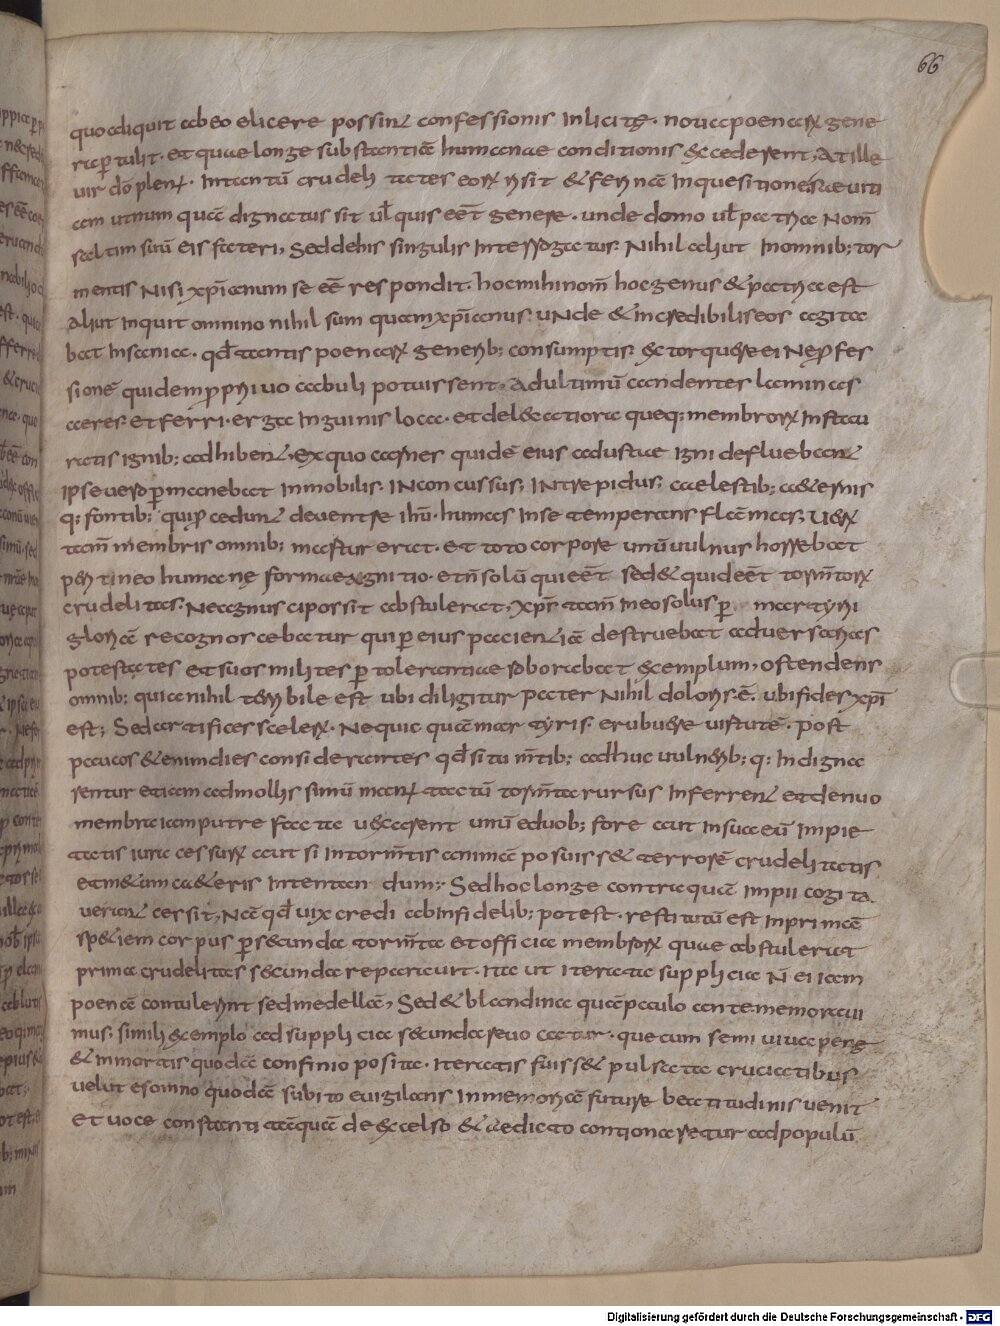 66
quo aliquit ab eo elicere possint confessionis inlicitę. noua poenarum gene
ra pertulit. et quae longe substantiā humanae conditionis excederent, At ille
uir dō plenus. In tantū crudelitates eorum risit & ferinā inquesitione
am ut num quā dignatus sit ul quis eēt genere. unde domo ul patria Nom̄
saltim suū eis fateri, Sed dehis singulis interrogatus. Nihil aliut in omnib; tor
mentis Nisi xp̄ianum se eē respondit. hoc mihi nom̄ hoc genus & patria est
Aliut inquit omnino nihil sum quam xp̄ianus. uNde & incredibilis eos agita
bat insania. qd̄ tantis poenarum generib; consumptis. extorquere ei Ne ꝓfes
sionē quidem ꝓprii uocabuli potuissent. Ad ultimū candentes laminas
aeres. et ferri. erga inguinis loca. et delicatiora queq; membrorum instau
ratis ignib; adhibent. ex quo carnes quidē eius adustae igni defluebant
ipse uero permanebat inmobilis. INconcussus, INtrepidus, caelestib; aeternis
q; fontib; qui ꝓcedunt deuentre ihū. humans in se temperans flāmas. Uerum
tam̄ membris omnib; mastur erat. et toto corpore unū uulnus horrebat
perit in eo humanę formae agnitio. et n̄ solū qui eēt sed & quid eēt tormtorum
crudelitas. Ne agnusci possit abstulerat, xp̄s tam̄ in eo solus per martyrii
gloriā recognoscebatur qui per eius pacientiā destruebat aduersarias
potestates et suos milites per tolerantiae roborabat exemplum, ostendens
omnib; quia nihil terribile est ubi diligitur pater Nihil doloris ē. ubi fides xp̄i
est; Sed artifices scelerum. Nequiequā martyris. erubuere uirtutē. post
paucos & enim dies considerantes qd̄ si tu m̄tib; adhuc uulnerib; q; indigna
rentur etiam ad mollis simū manus tactū torm̄ta rursus inferrent et denuo
membra iam putrefacta uexarent unū eduob; fore aut in suā eū impie
tatis iura cessurum aut si in torm̄tis animā posuisset terrorē crudelitatis
et metum caeteris intentan dum; Sed hoc longe contra quā impii cogita
uerant cersit, Nā qd̄ uix credi ab infidelib; potest. restitutū est in primā
speciem corpus per secunda torm̄ta et officia membrorum quae abstulerat
prima crudelitas secunda reparauit. Ita ut iterata supplicia n̄ ei iam
poenā contulerint sed medellā, Sed & blandina quā paulo ante memoraui
mus. simili exemplo ad supplicia secunda reuocatur. que cum semiuiua per
& in mortis quodā confinio posita. iteratis fuisset pulsata cruciatibus
uelut e somno quodā subito euigilans in memoriā future beatitudinis uenit
et uoce constanti tāquā de excelso & aedicto contionaretur ad populū
Digitalisierung gefördert durch die Deutsche Forschungsgemeinschaft - DFG